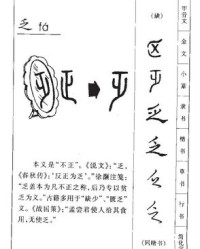 乏
(缺)
甲骨文
金文
小篆
隶书
楷书
草书
行书
简化字
(同楷书)
本义是“不正”。《说文》:“乏，
《春秋传》:‘反正为乏’。”徐灏注笺:
“乏盖本为凡不正之称，后乃专以贫
乏为义。”古籍多用于“缺少”、“匮乏”
义。《战国策》:“孟尝君使人给其食
用，无使乏。”